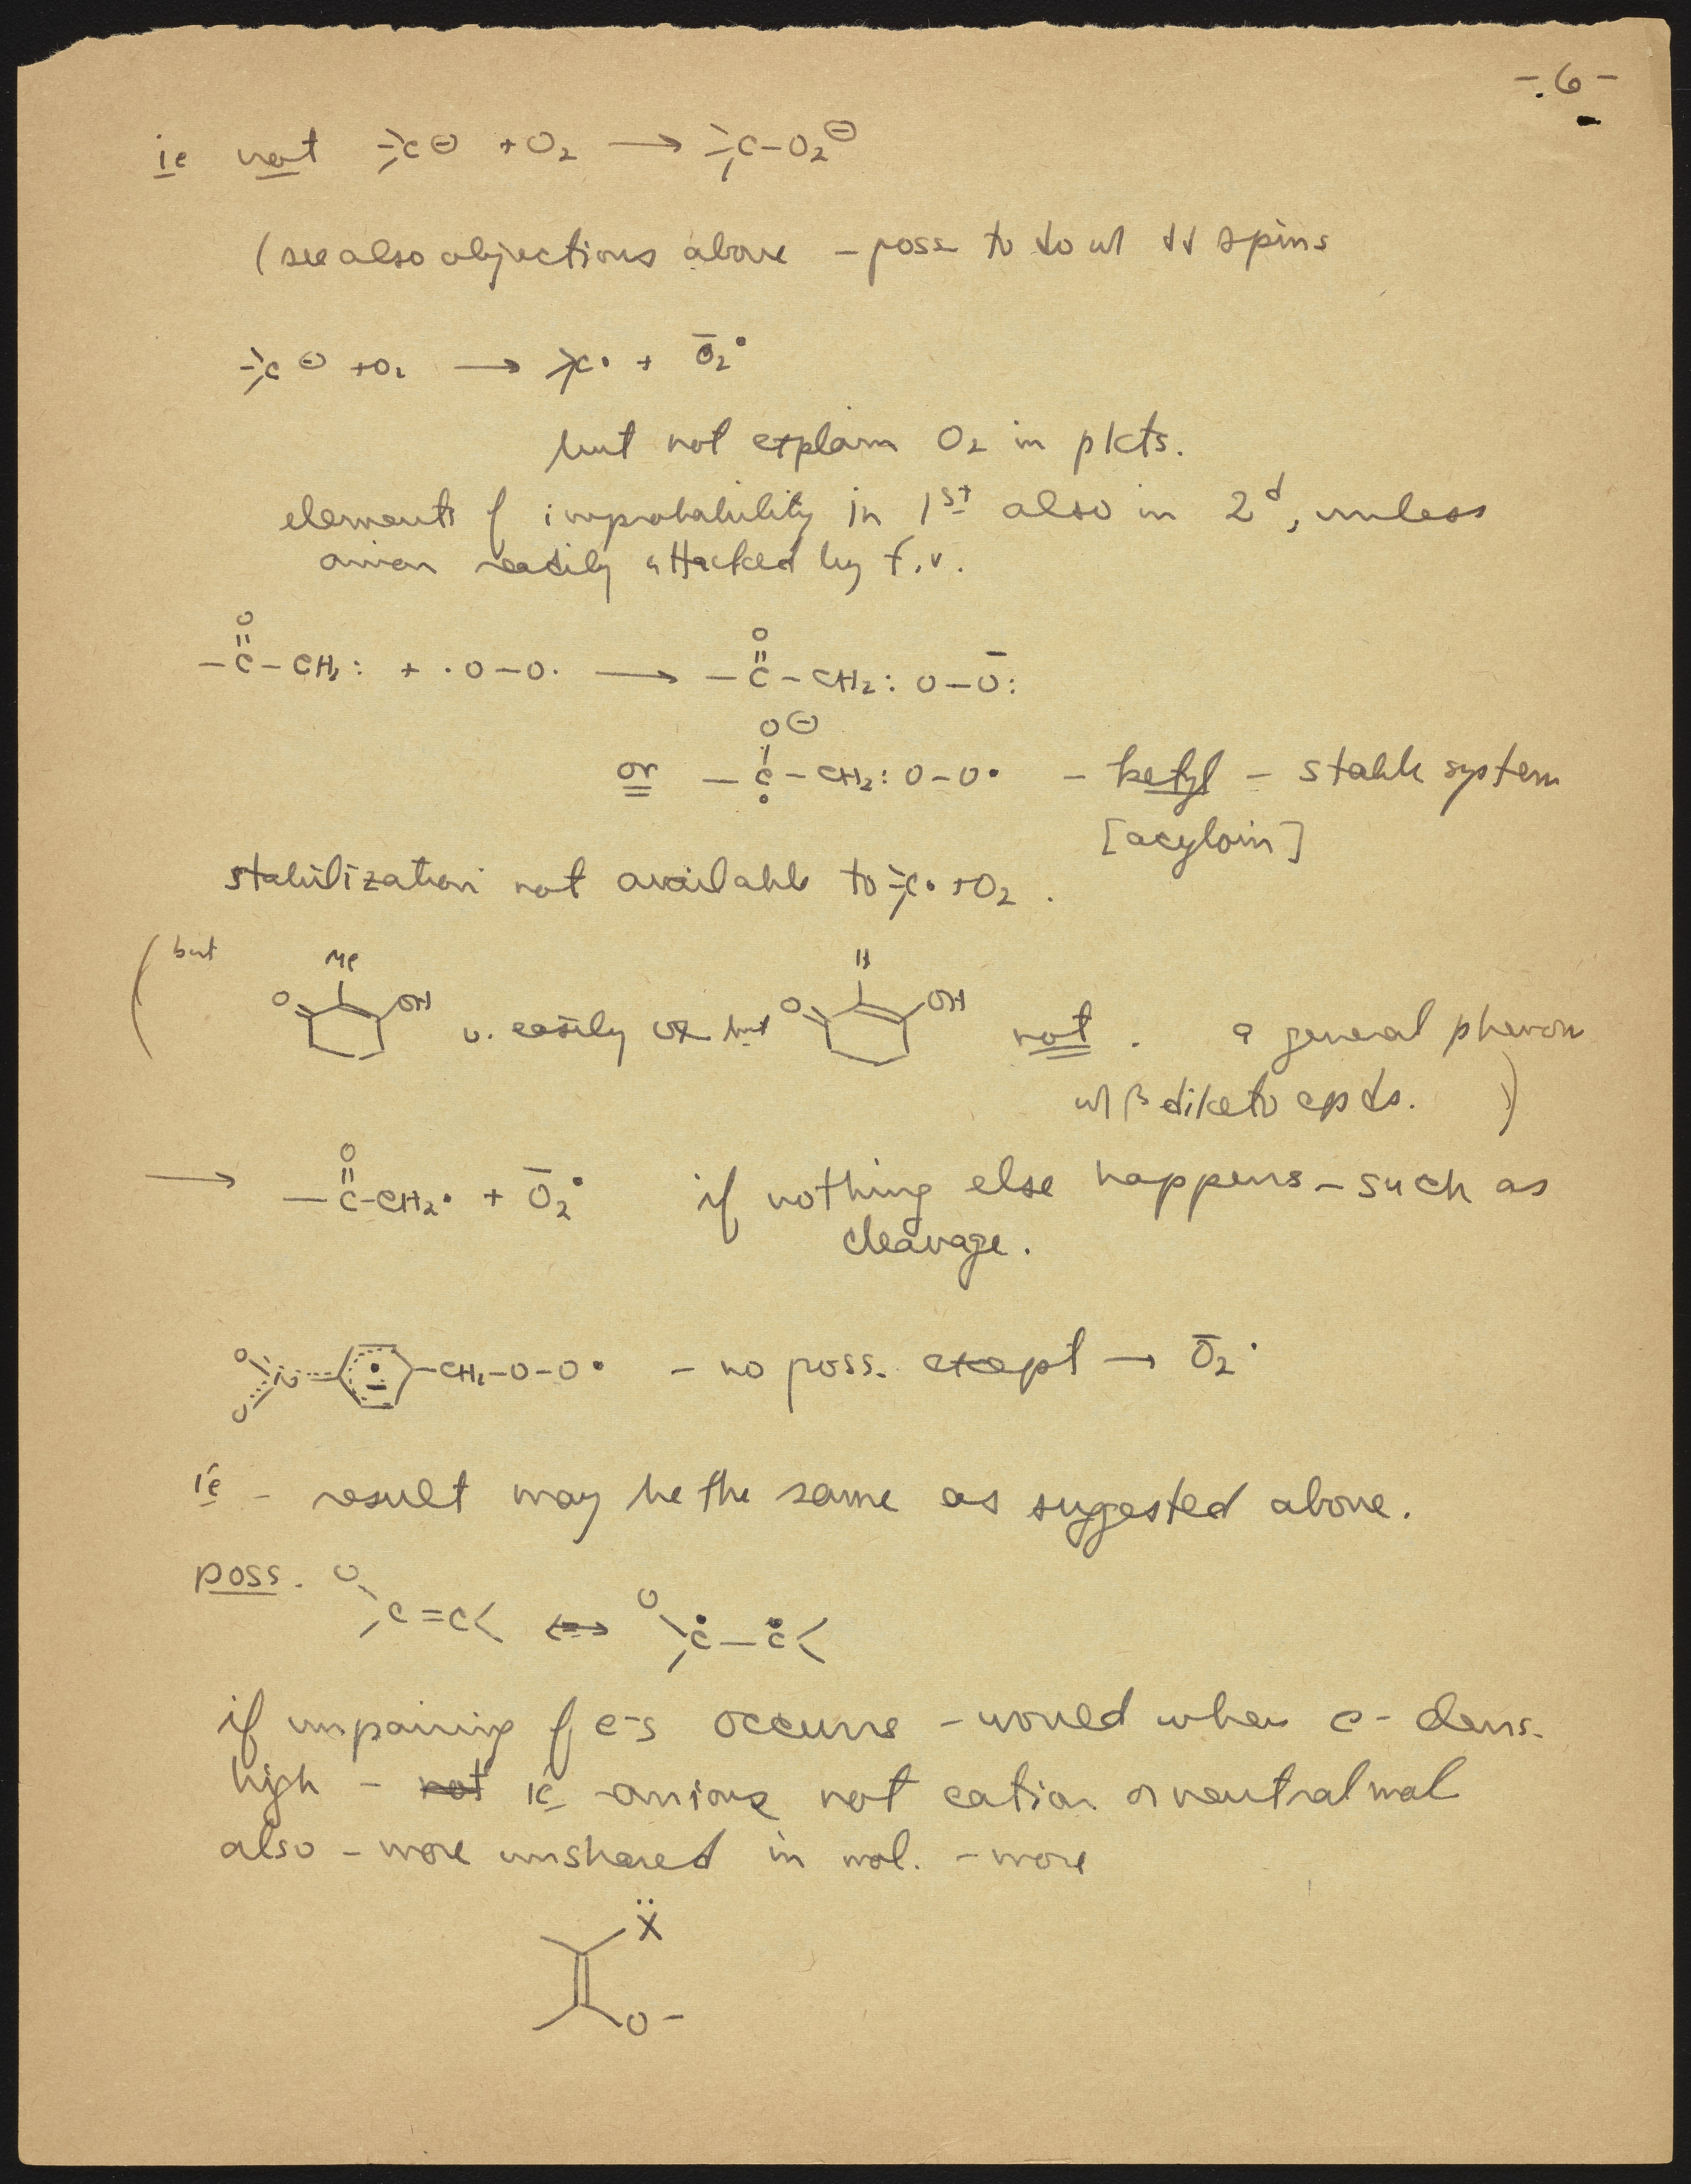 - 6 -
ie not ⩾C⊖ + O2 → ⩾C–O2⊖
(see also objections above – poss to do w/ ↓↓ spins
⩾C⊖ + O2 → ⩾C• + Ō2•
but not explain O2 in pdcts.
elements of improbability in 1st also in 2d, unless
anion readily attacked by f.r.
–C(=O)–CH2: + ·O–O· → –C(=O)–CH2: O–Ō:
or –Ċ(O⊖)–CH2: O–O• – ketyl – stable system
[acyloin]
stabilization not available to ⩾C• + O2.
(but
Me O OH v. easily ox but H O OH not. a general phenom
w/ β diketo cpds. )
→ –C(=O)–CH2• + Ō2• if nothing else happens – such as
cleavage.
O N O –CH2–O–O• – no poss. except → Ō2•
ie – result may be the same as suggested above.
poss. O C=C< ↔ O Ċ–Ċ<
if unpairing of e-s occurs – would when e- dens.
high – ~~not~~ ie anions not cation or neutral mol
also – more unshared in mol. – more
Ẍ
O–